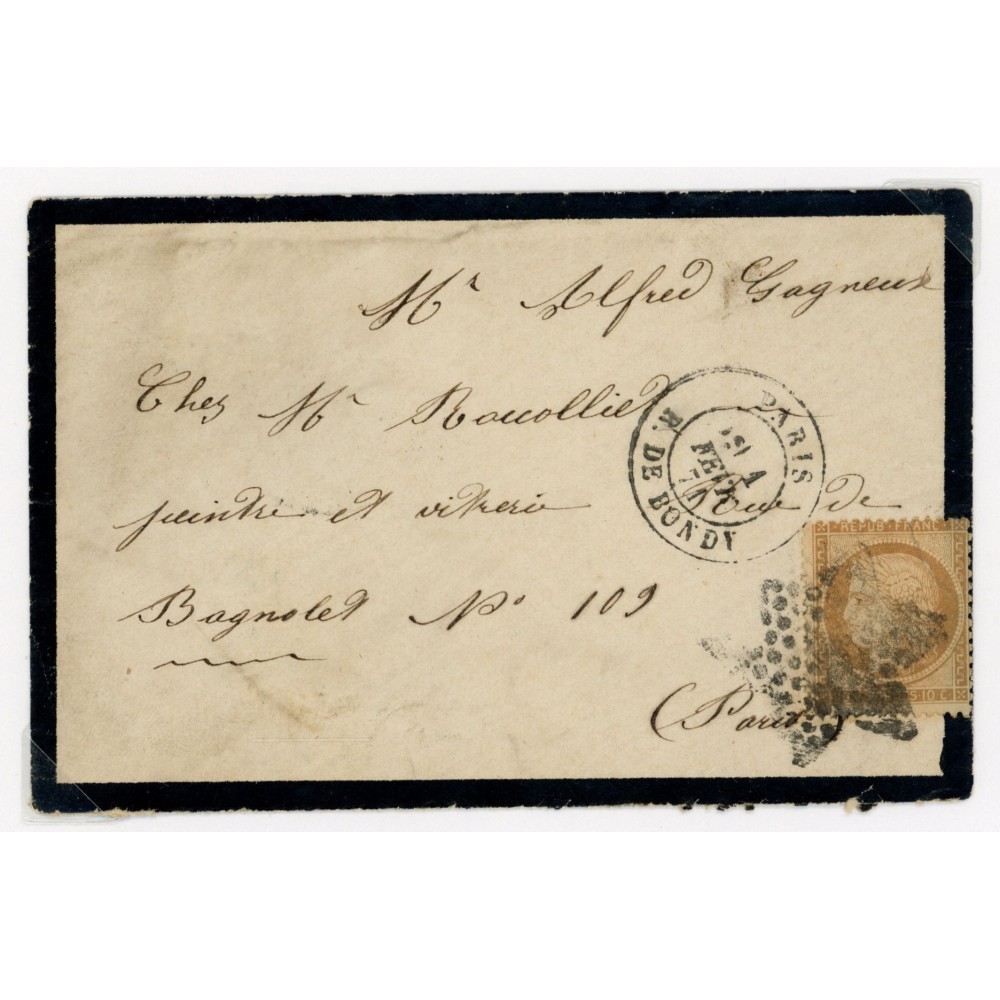 Mr Alfred Gagneux
Chez Mr Roucollier
peintre et vitrerie Rue de
Bagnolet No 109
(Paris)
PARIS
R. DE BONDY
FEVR
REPUB FRANC
10 C